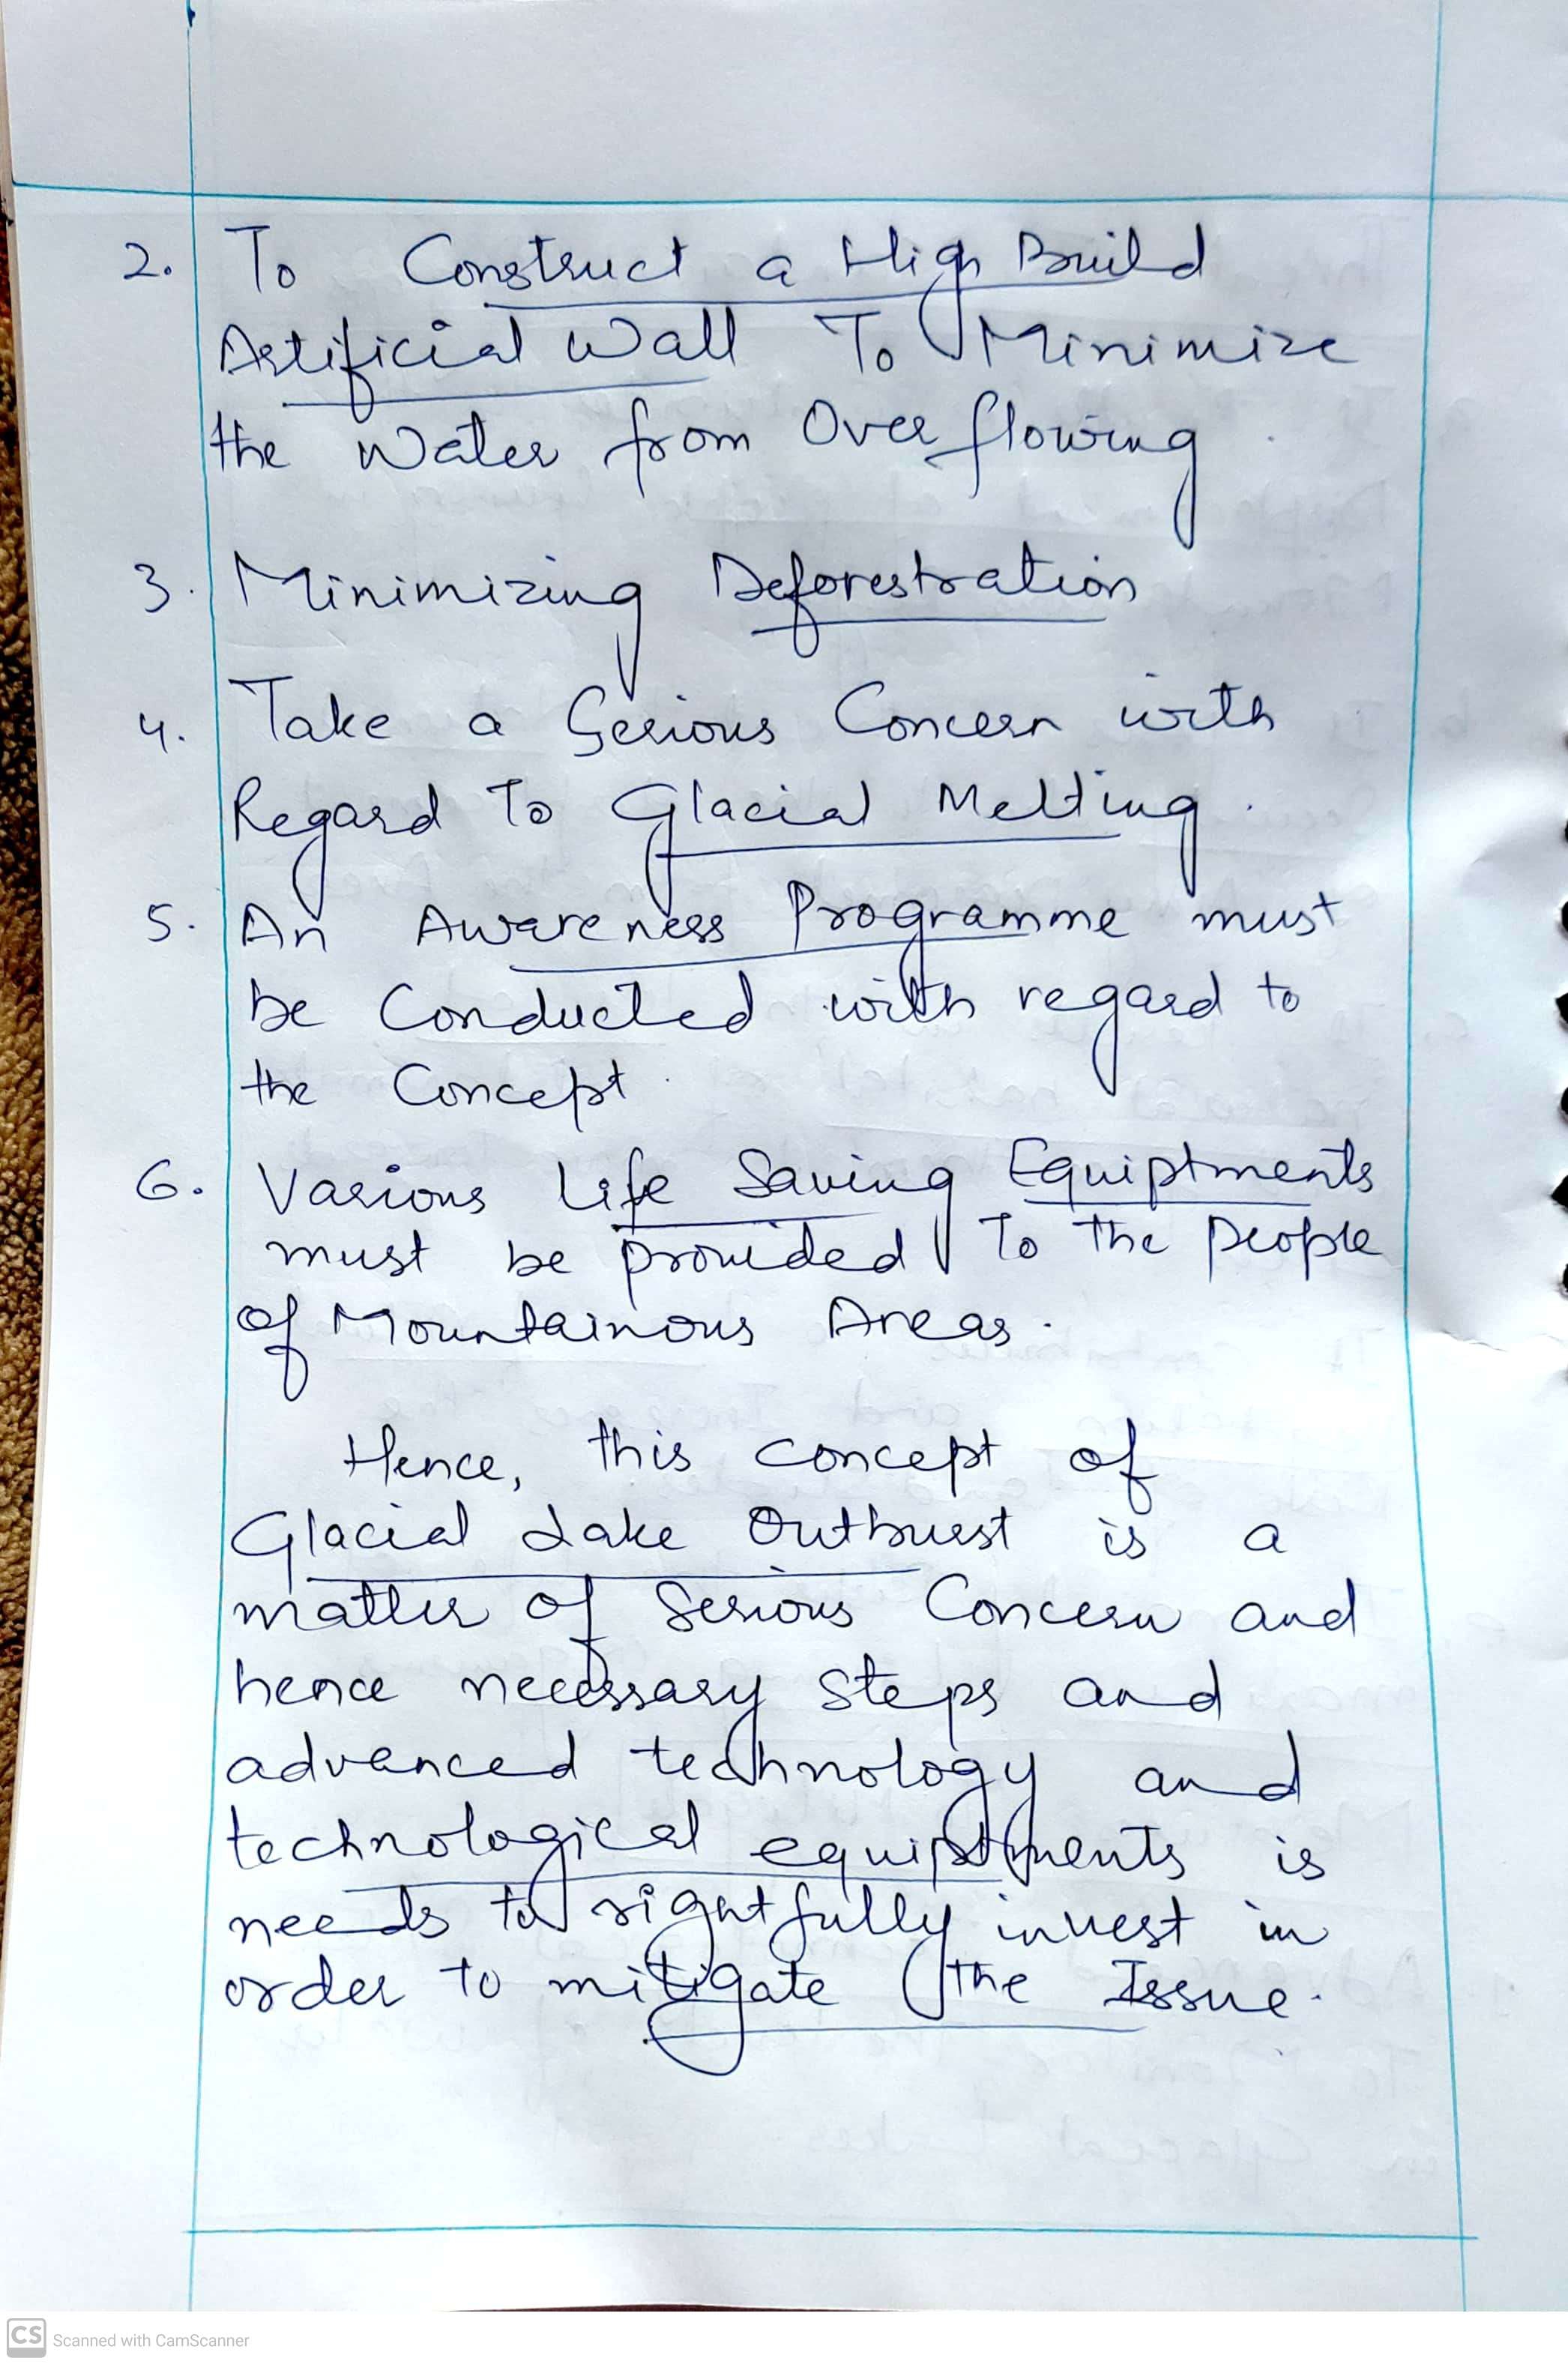 2. To Construct a High Build
Artificial Wall To Minimize
the Water from Over flowing.
3. Minimizing Deforestration
4. Take a Serious Concern with
Regard To Glacial Melting.
5. An Awareness Programme must
be Conducted with regard to
the Concept.
6. Various Life Saving Equiptments
must be provided To the People
of Mountainous Areas.
Hence, this concept of
Glacial Lake Outburst is a
matter of Serious Concern and
hence necessary steps and
advanced technology and
technological equiptments is
needs to rightfully invest in
order to mitigate the Issue.
CS Scanned with CamScanner